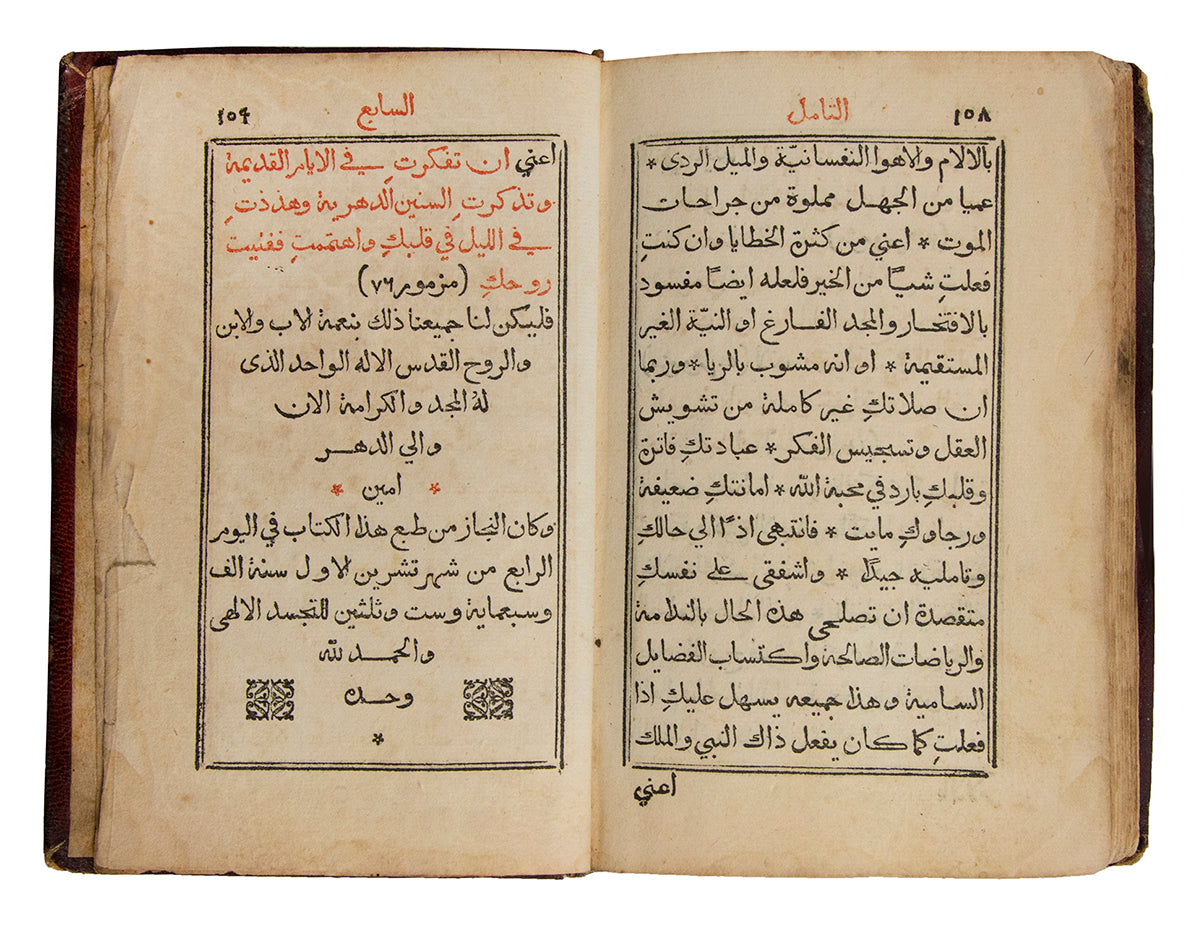 ١٥٨ التامل
بالالام والاهوا النفسانيّة والميل الردى *
عميا من الجهل مملوة من جراحات
الموت * اعني من كثرة الخطايا وان كنتِ
فعلتِ شيًا من الخير فلعله ايضًا مفسود
بالافتخار والمجد الفارغ او النيّة الغير
المستقيمة * او انه مشوب بالريا * وربما
ان صلاتكِ غير كاملة من تشويش
العقل وتسجيس الفكر * عبادتكِ فاترة
وقلبكِ بارد في محبة الله * امانتكِ ضعيفة
ورجاوكِ مايت * فانتبهى اذًا الي حالكِ
وتامليه جيدًا * واشفقى على نفسكِ
متقصدة ان تصلحي هذه الحال بالندامة
والرياضات الصالحة واكتساب الفضايل
السامية وهذا جميعه يسهل عليكِ اذا
فعلتِ كما كان يفعل ذاك النبي والملك
اعني
السابع ١٥٩
اعني ان تفكرتِ في الايام القديمة
وتذكرتِ السنين الدهرية وهذذتِ
في الليل في قلبكِ واهتممتِ ففتيت
روحكِ (مزمور ٧٦)
فليكن لنا جميعنا ذلك بنعمة الاب والابن
والروح القدس الاله الواحد الذى
لهُ المجد والكرامة الان
والي الدهر
* امين *
وكان النجاز من طبع هذا الكتاب في اليوم
الرابع من شهر تشرين الاول سنة الف
وسبعماية وست وثلثين للتجسد الالهى
والحمد لله
وحده
*